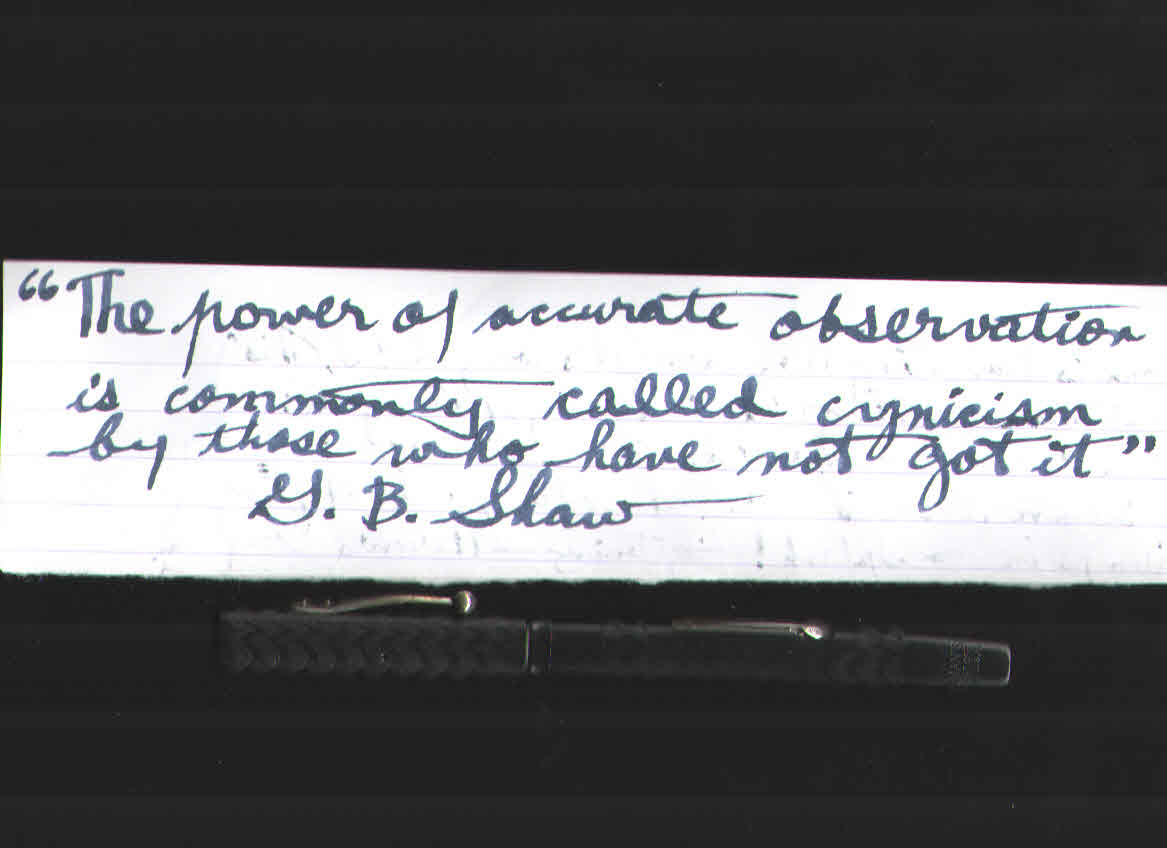 “The power of accurate observation
is commonly called cynicism
by those who have not got it”
G. B. Shaw